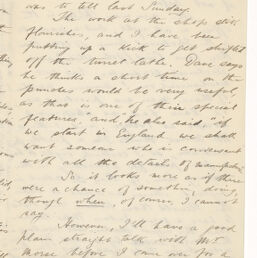 was to tell last Sunday.
The work at the shop still
flourishes, and I have been
putting up a kick to get shifted
off the turret lathe. Dave says
he thinks a short time on the
would be very useful,
as that is one of their special
features, "and, he also said, "if
we start in England we shall
want someone who is conversant
with all the details of manufacture"
So it looks more as if there
were a chance of something doing,
though when, of course, I cannot
say.
However, I'll have a good
plain straight talk with Mr
Morse before I come over for a